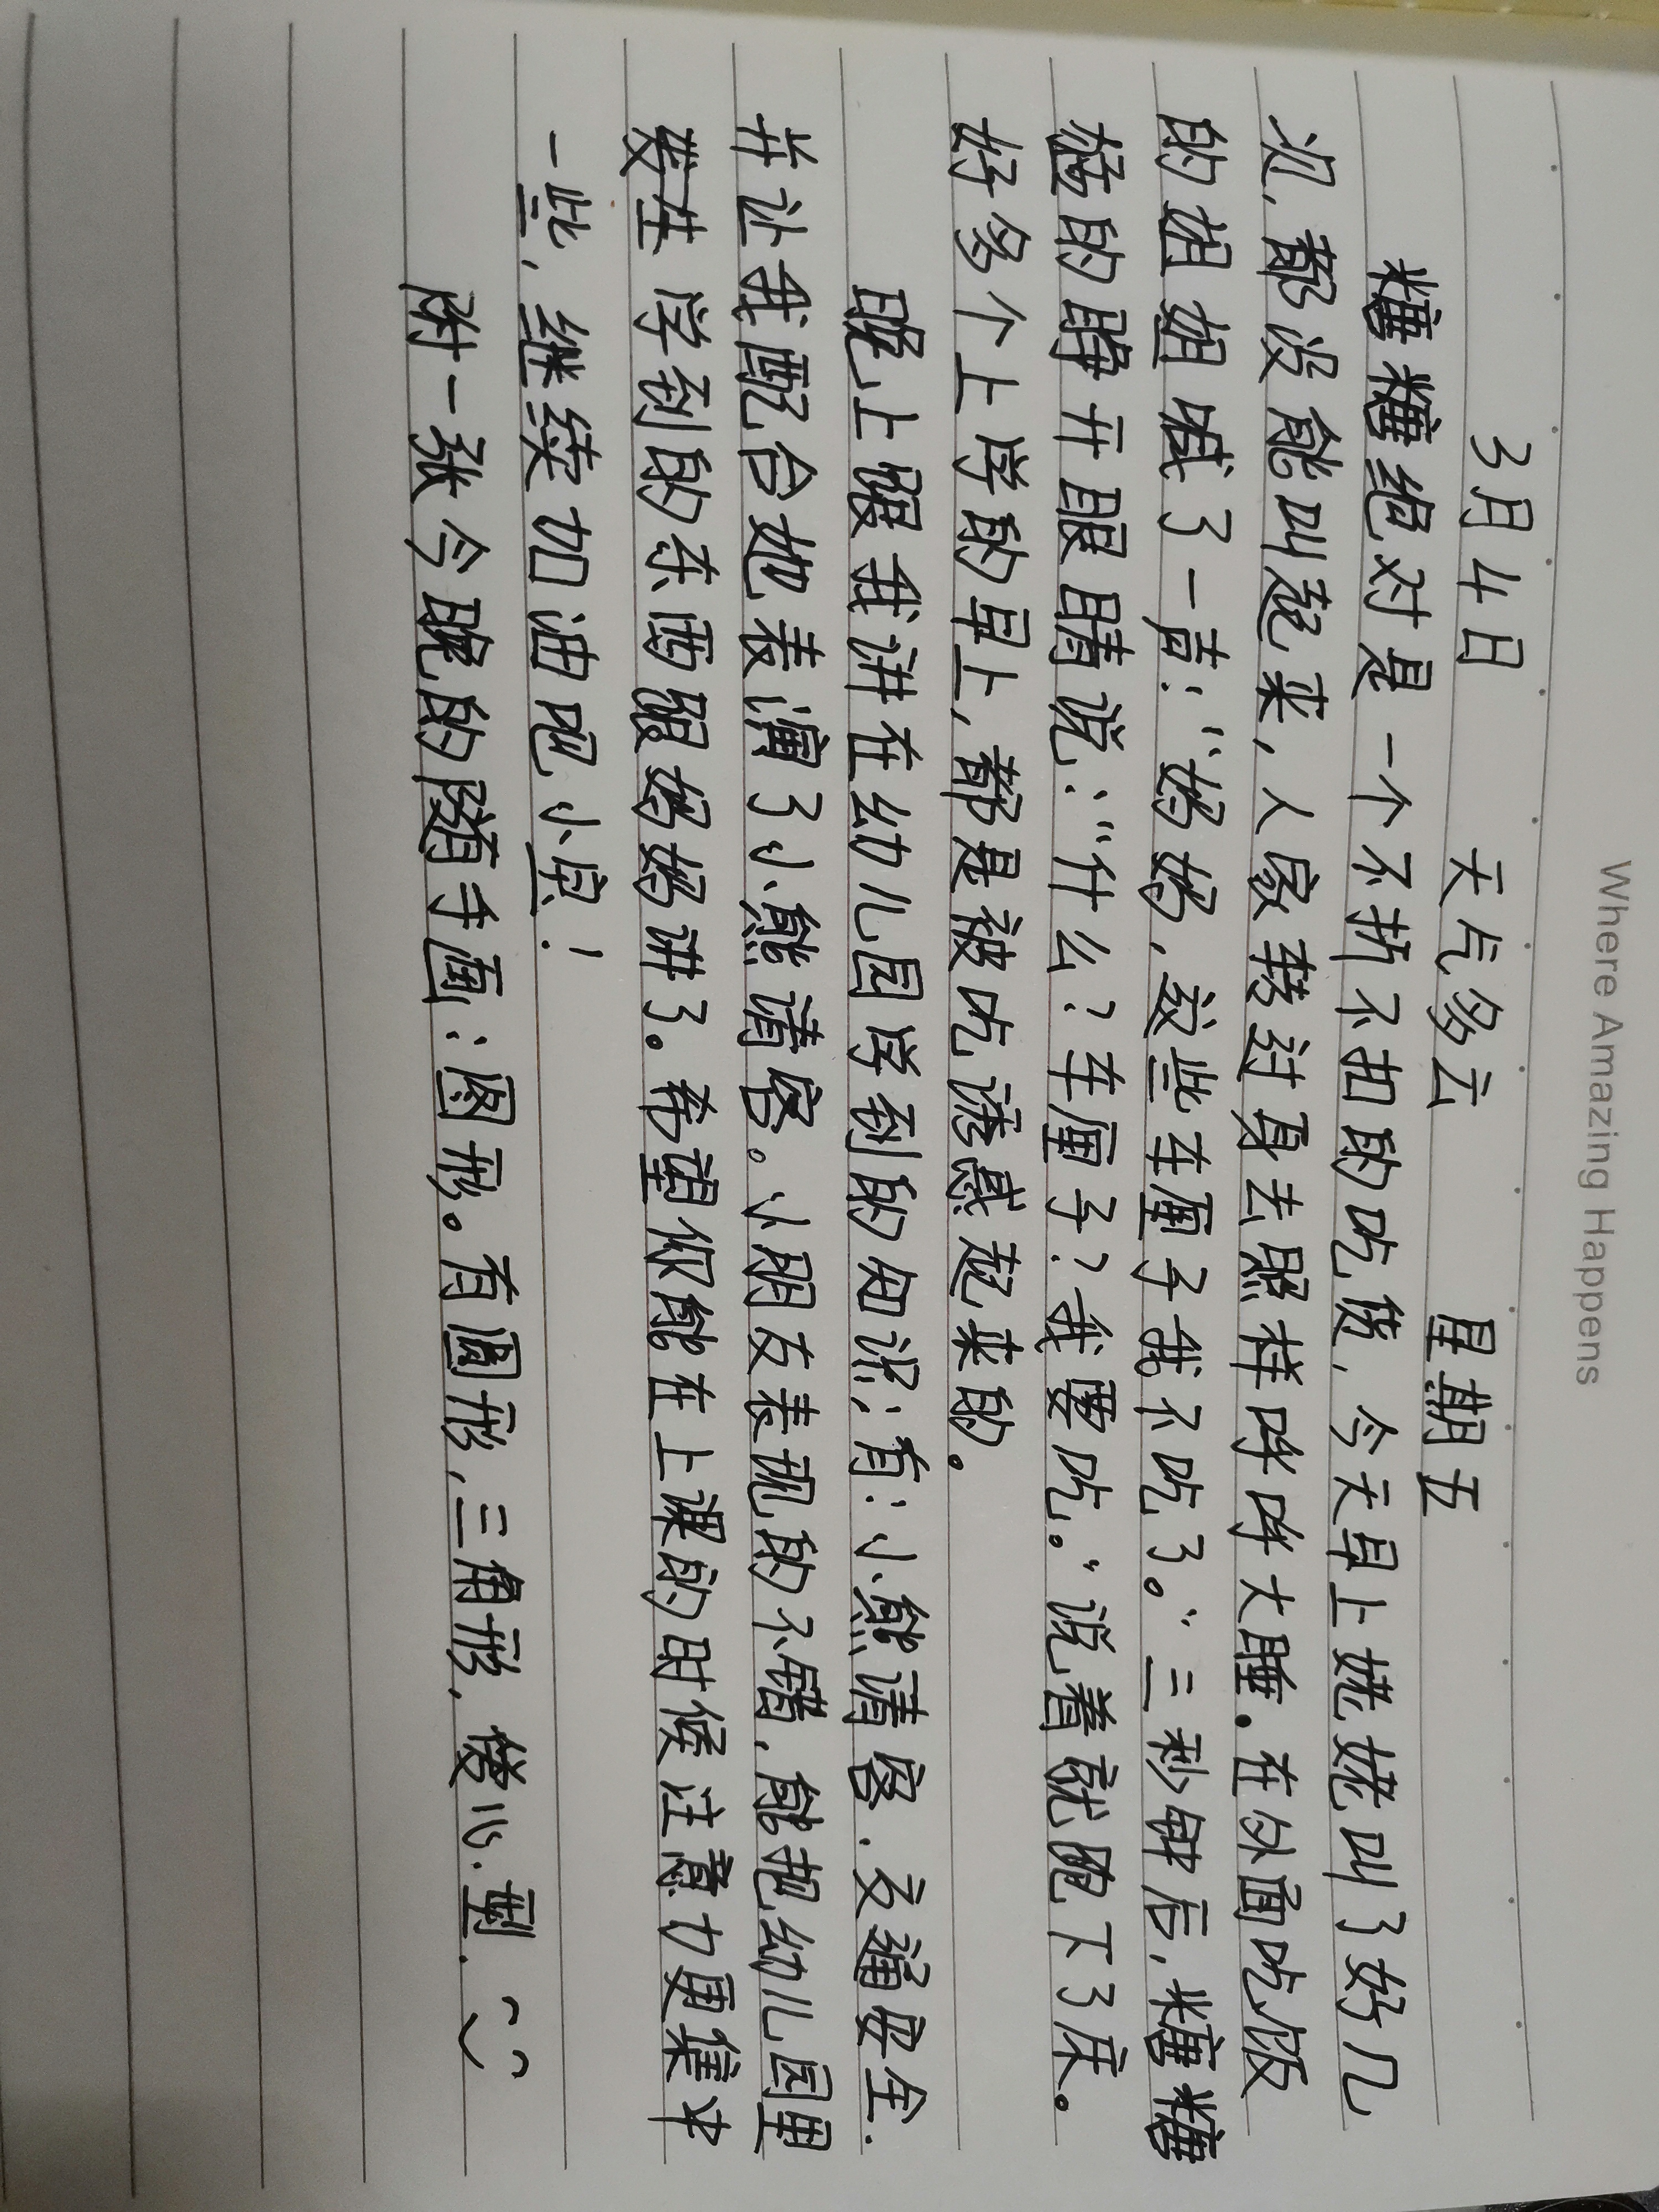 Where Amazing Happens
3月4日 天气多云 星期五
糖糖绝对是一个不折不扣的吃货，今天早上姥姥叫了好几
次，都没能叫起来，人家转过身去照样呼呼大睡。在外面吃饭
的姐姐喊了一声：“妈妈，这些车厘子我不吃了。”三秒钟后，糖糖
猛的睁开眼睛说：“什么？车厘子？我要吃。”说着就跑下了床。
好多个上学的早上，都是被吃诱惑起来的。
晚上跟我讲在幼儿园学到的知识；有：小熊请客．交通安全．
并让我配合她表演了小熊请客。小朋友表现的不错，能把幼儿园里
发生 学到的东西跟妈妈讲了。希望你能在上课的时候注意力更集中
一些，继续加油吧小宝！
附一张今晚的随手画：图形。有圆形，三角形，偻心．型．